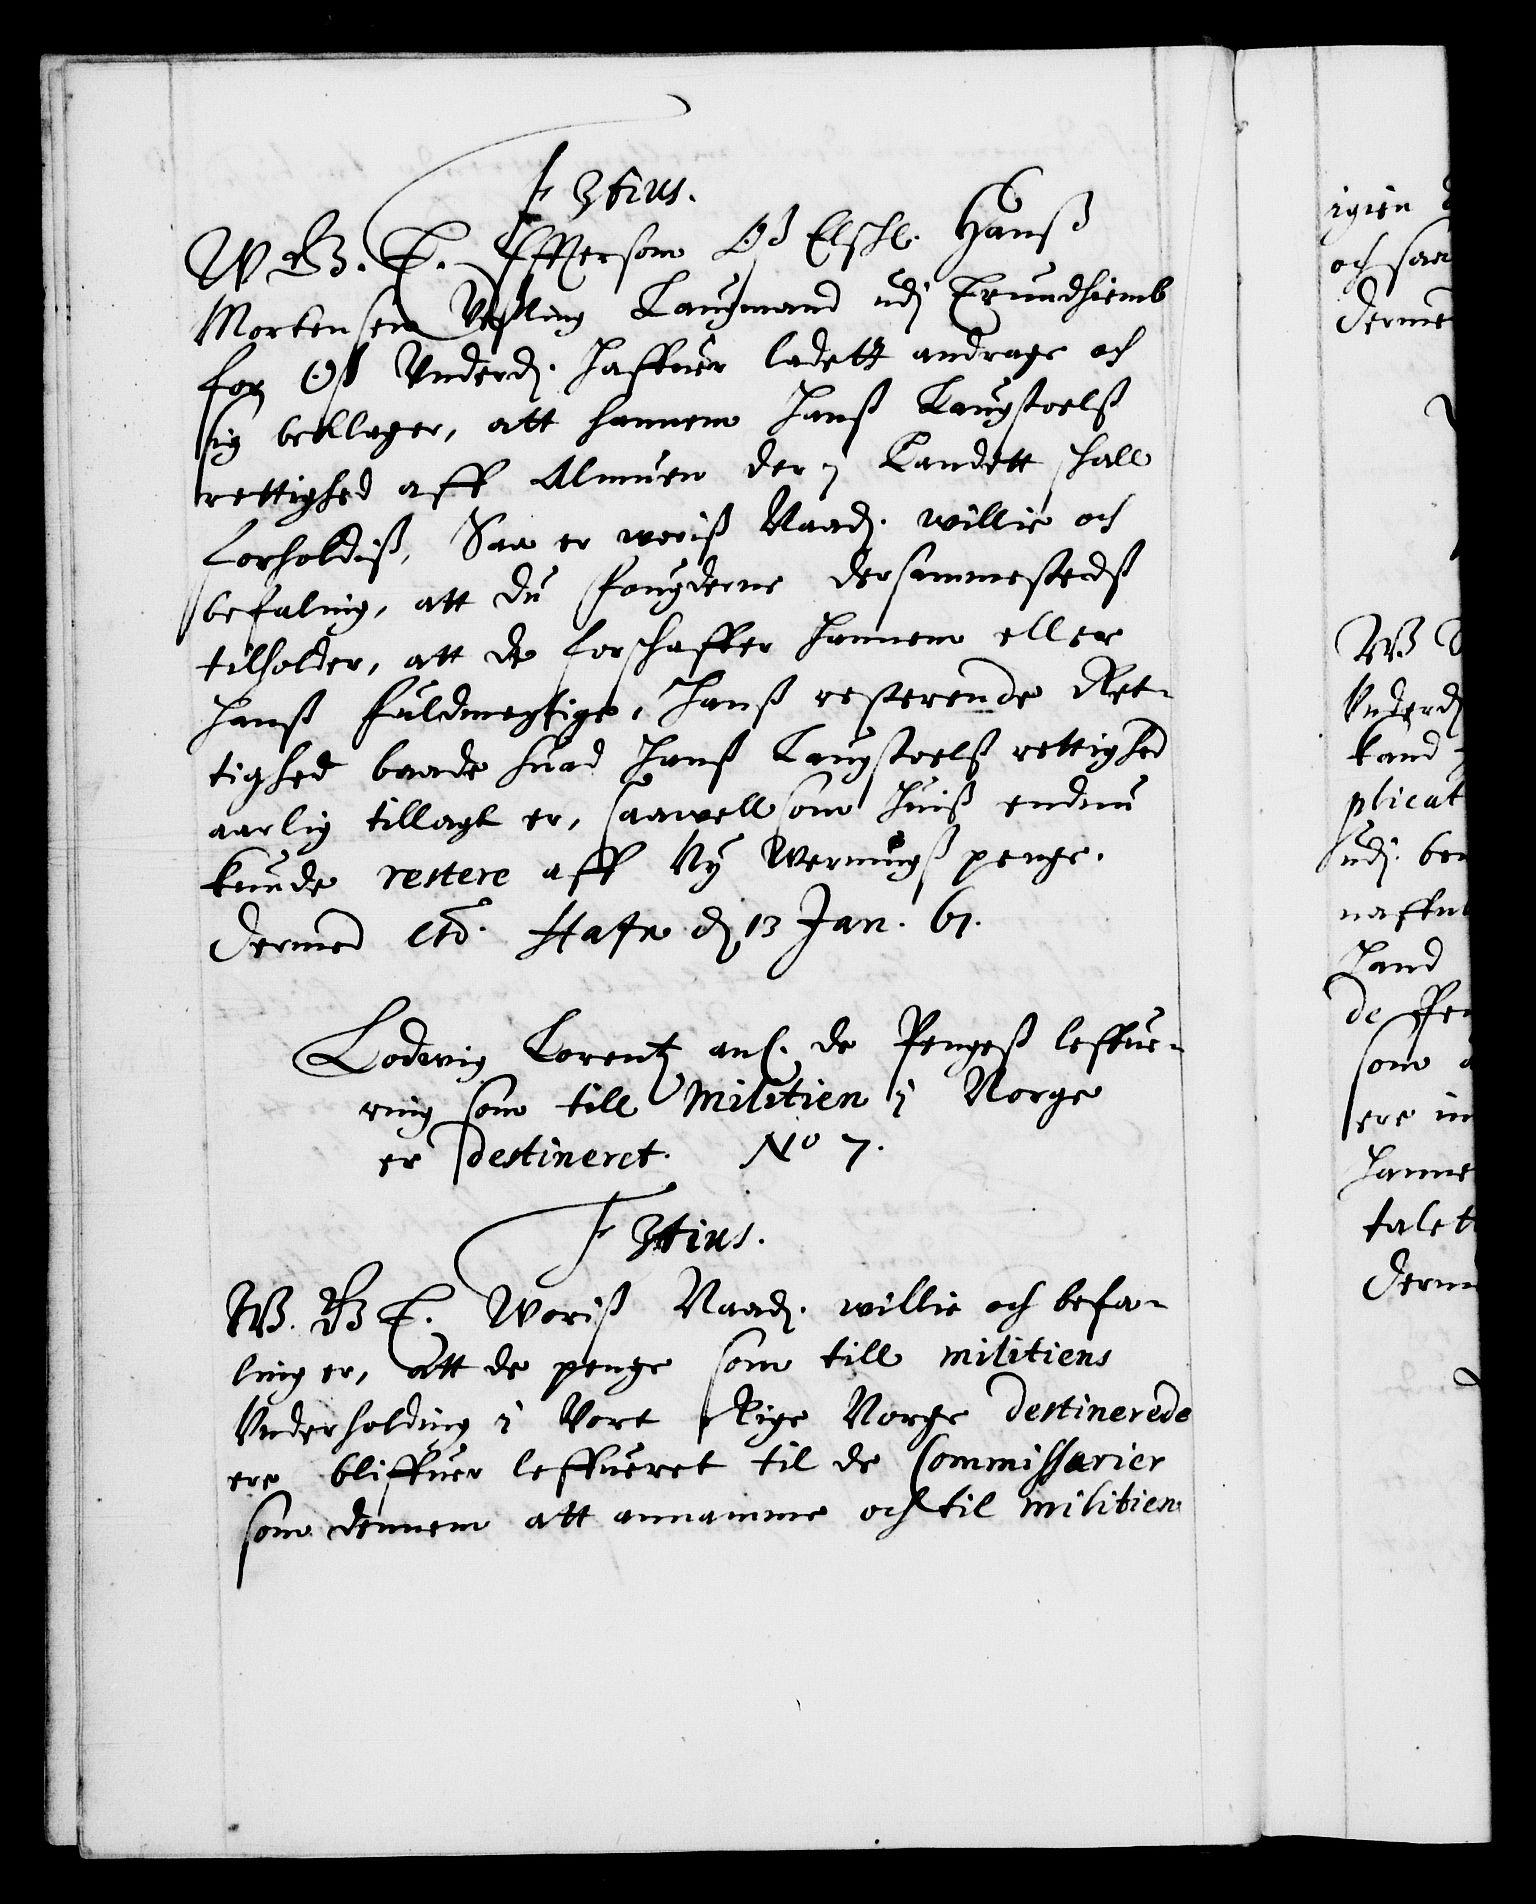 F 3tius.
W. G. T. Effter som Oß Elschl. Hanß
Mortensen Veßling Laugmand udj Trundhiemb
for Oß Underd. haffuer ladett andrage och
sig beklager, att hannem hanß Laugstoelß
rettighed aff Almuen der i Landett schall
forholdiß, Saa er woriß Naad. willie och
befaling, att du fougderne dersammestedß
tilholder, att de forschaffer hannem eller
hanß fuldmegtige, hanß resterende Ret-
tighed baade huad hanß Laugstoelß rettighed
aarlig tillagt er, saawell som huiß endnu
kunde restere aff Ny Wernungß penge.
Dermed etc. Hafn d. 13 Jan. 61.
Lodwig Lorentz anl. de Pengeß leffue-
ring som till Militien i Norge
er destineret. No 7.
F 3tius.
W. G. T. Woriß Naad. willie och befa-
ling er, att de penge som till militiens
Underholding i Vort Rige Norge destinerede
ere bliffuer leffueret til de Commissarier
som dennem att annamme och til militien
igien
och saa
Derme
W.
Underd
kand
plicat
udj. be
naffn
Hand
de Pe
som
ere in
hanne
talet
Derm